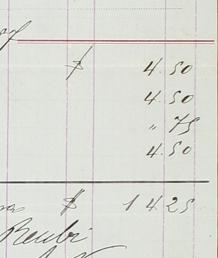 $ 4.50
4.50
" 75
4.50
$ 14 25